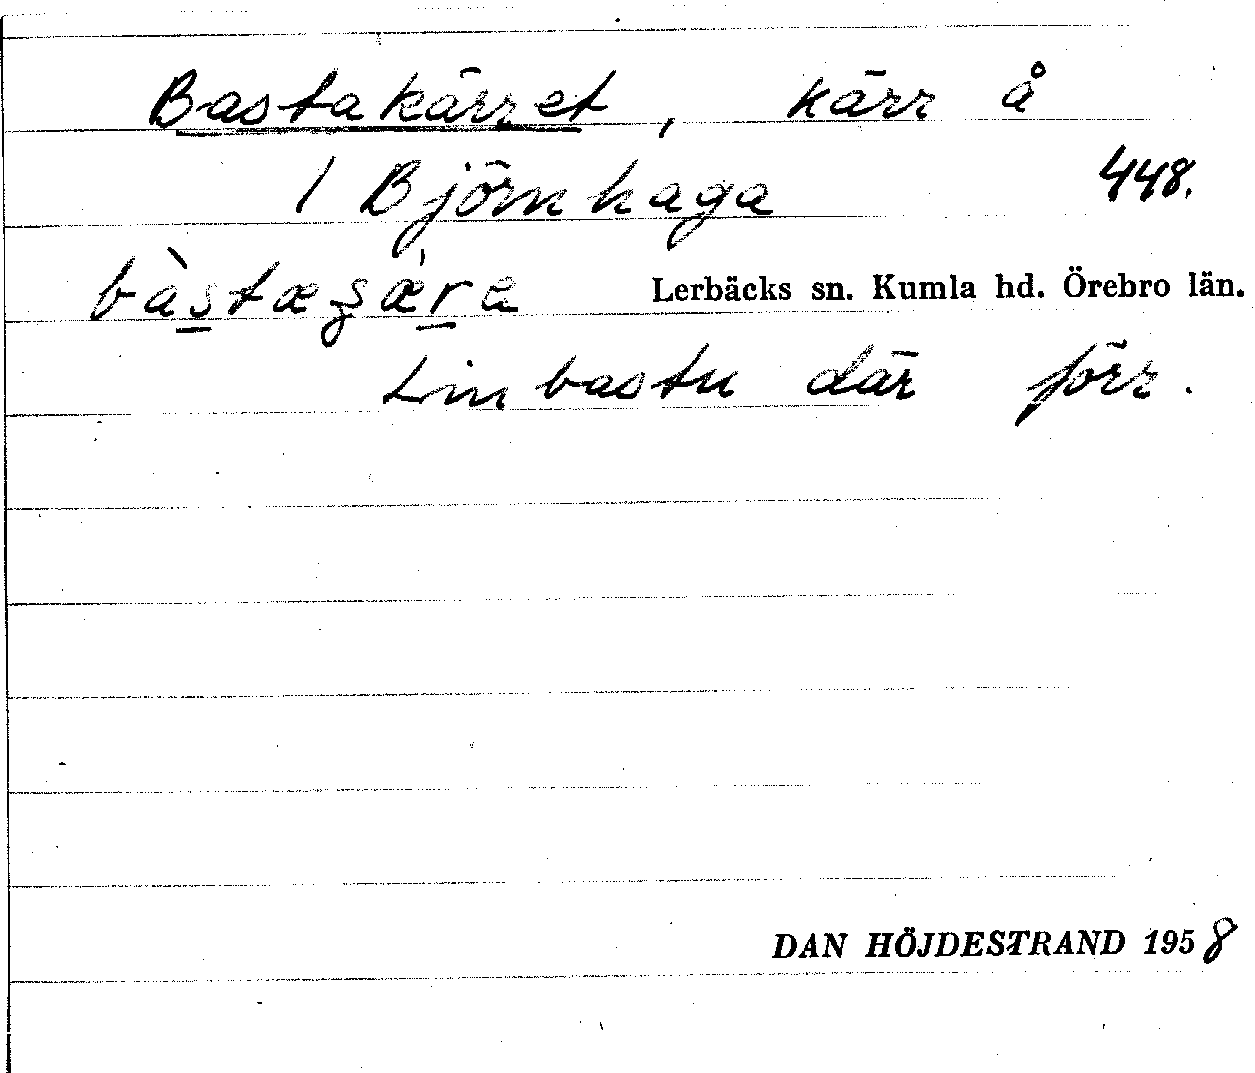 Bastakärret, kärr å
1 Björnhaga 448.
bàstæʂæ̀ra Lerbäcks sn. Kumla hd. Örebro län.
Linbastu där förr.
DAN HÖJDESTRAND 1958